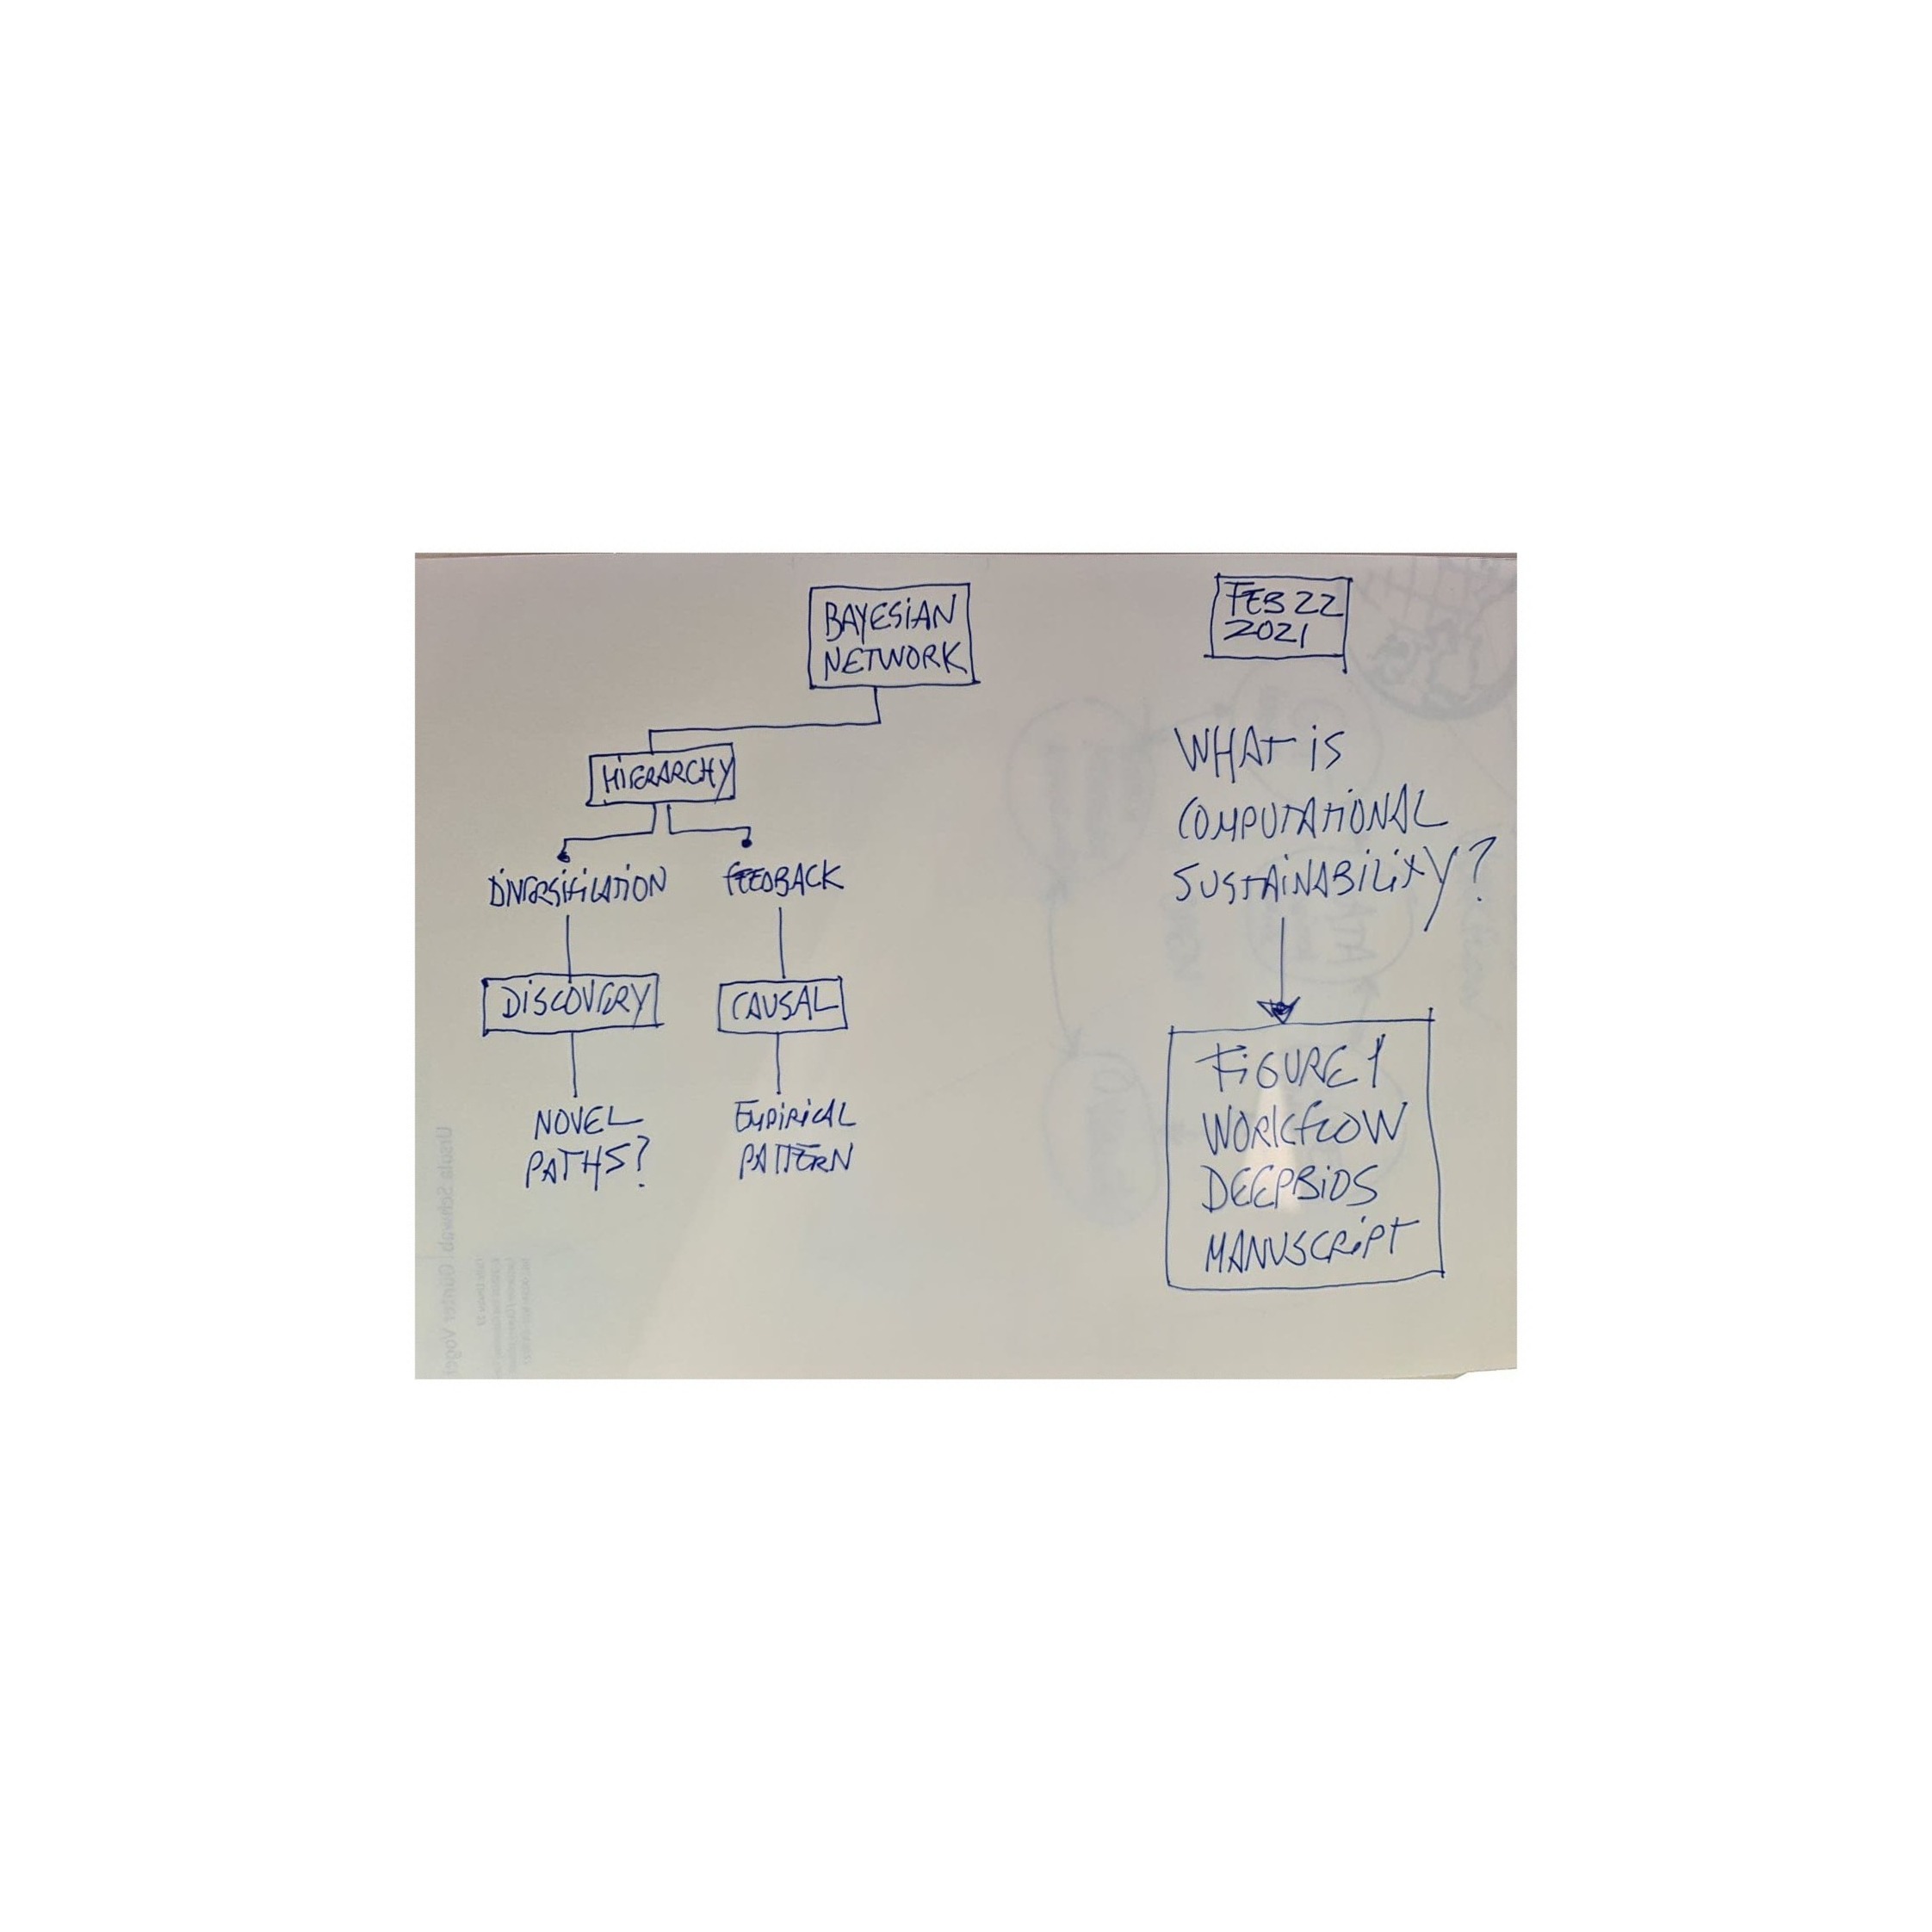 BAYESIAN
NETWORK
HIERARCHY
DIVERSIFICATION
FEEDBACK
DISCOVERY
CAUSAL
NOVEL
PATHS?
EMPIRICAL
PATTERN
FEB 22
2021
WHAT IS
COMPUTATIONAL
SUSTAINABILITY?
FIGURE 1
WORKFLOW
DEEPBIOS
MANUSCRIPT
Ursula Schwab Günter Vogel